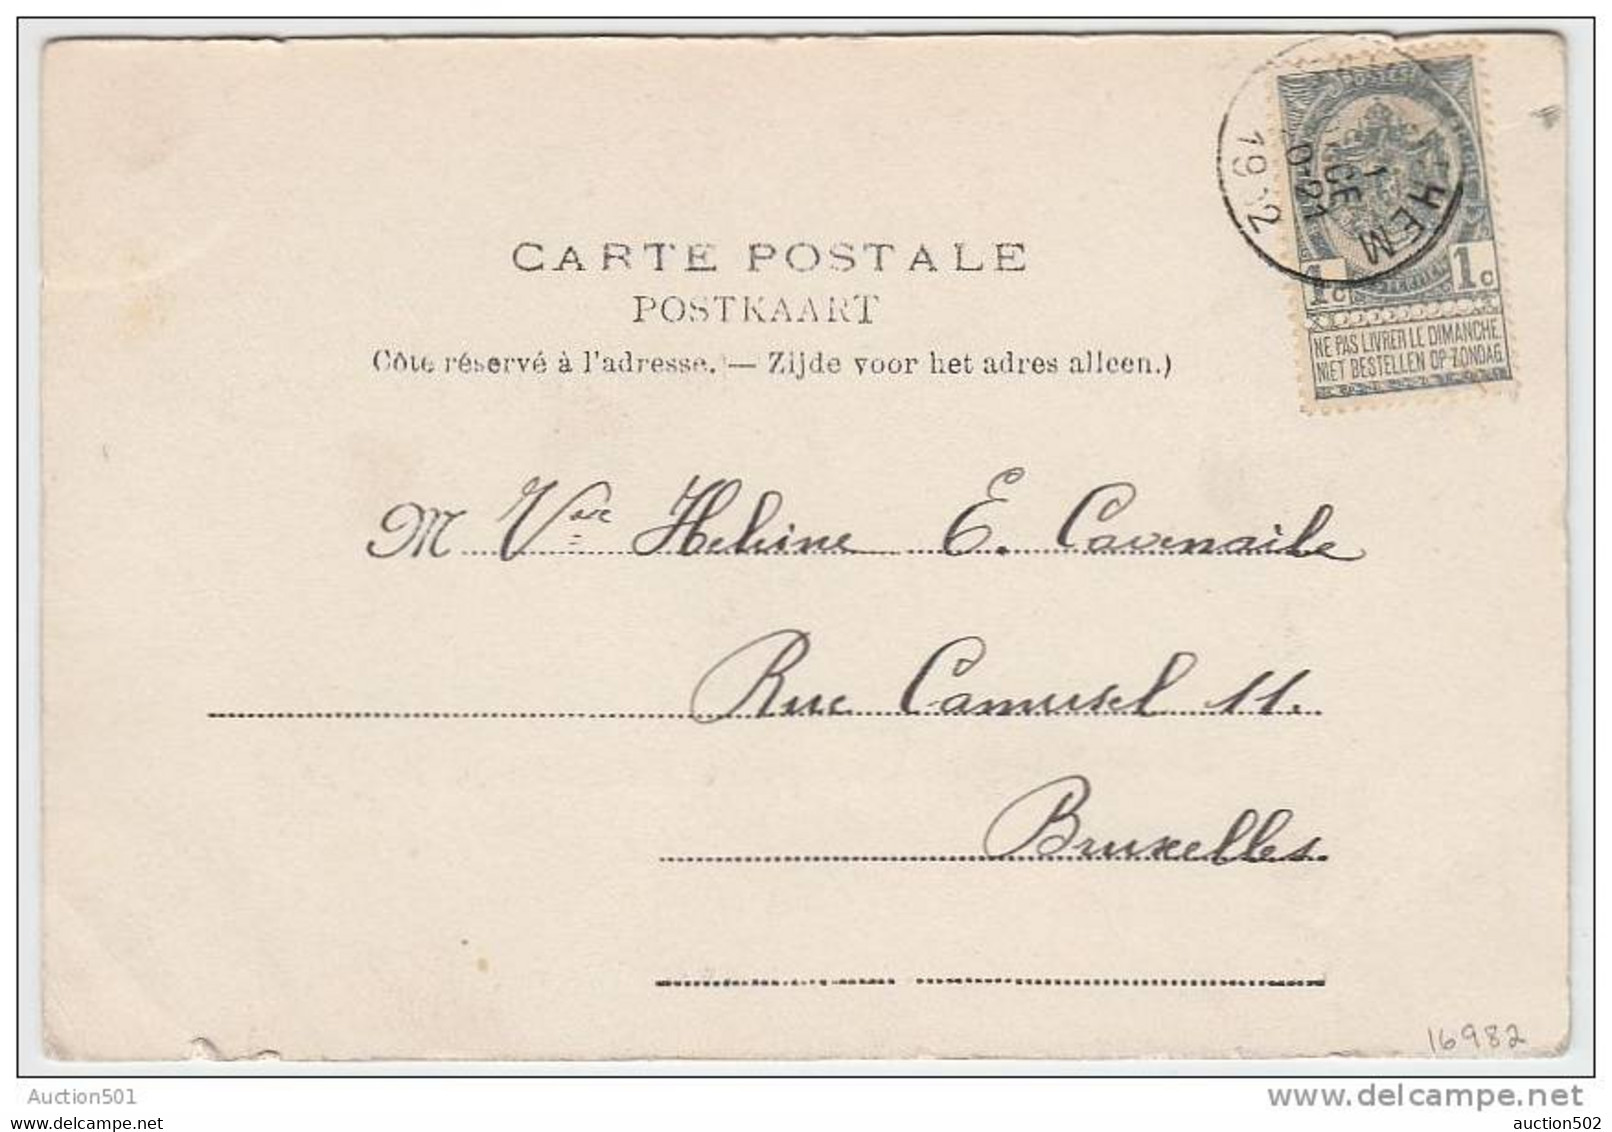 CARTE POSTALE
POSTKAART
Côté réservé à l'adresse. — Zijde voor het adres alleen.)
1c 1c
NE PAS LIVRER LE DIMANCHE
NIET BESTELLEN OP ZONDAG
M Vve Heleine E. Cavenaile
Rue Camusel 11.
Bruxelles.
16982
Auction501
www.delcampe.net
auction502
auction502